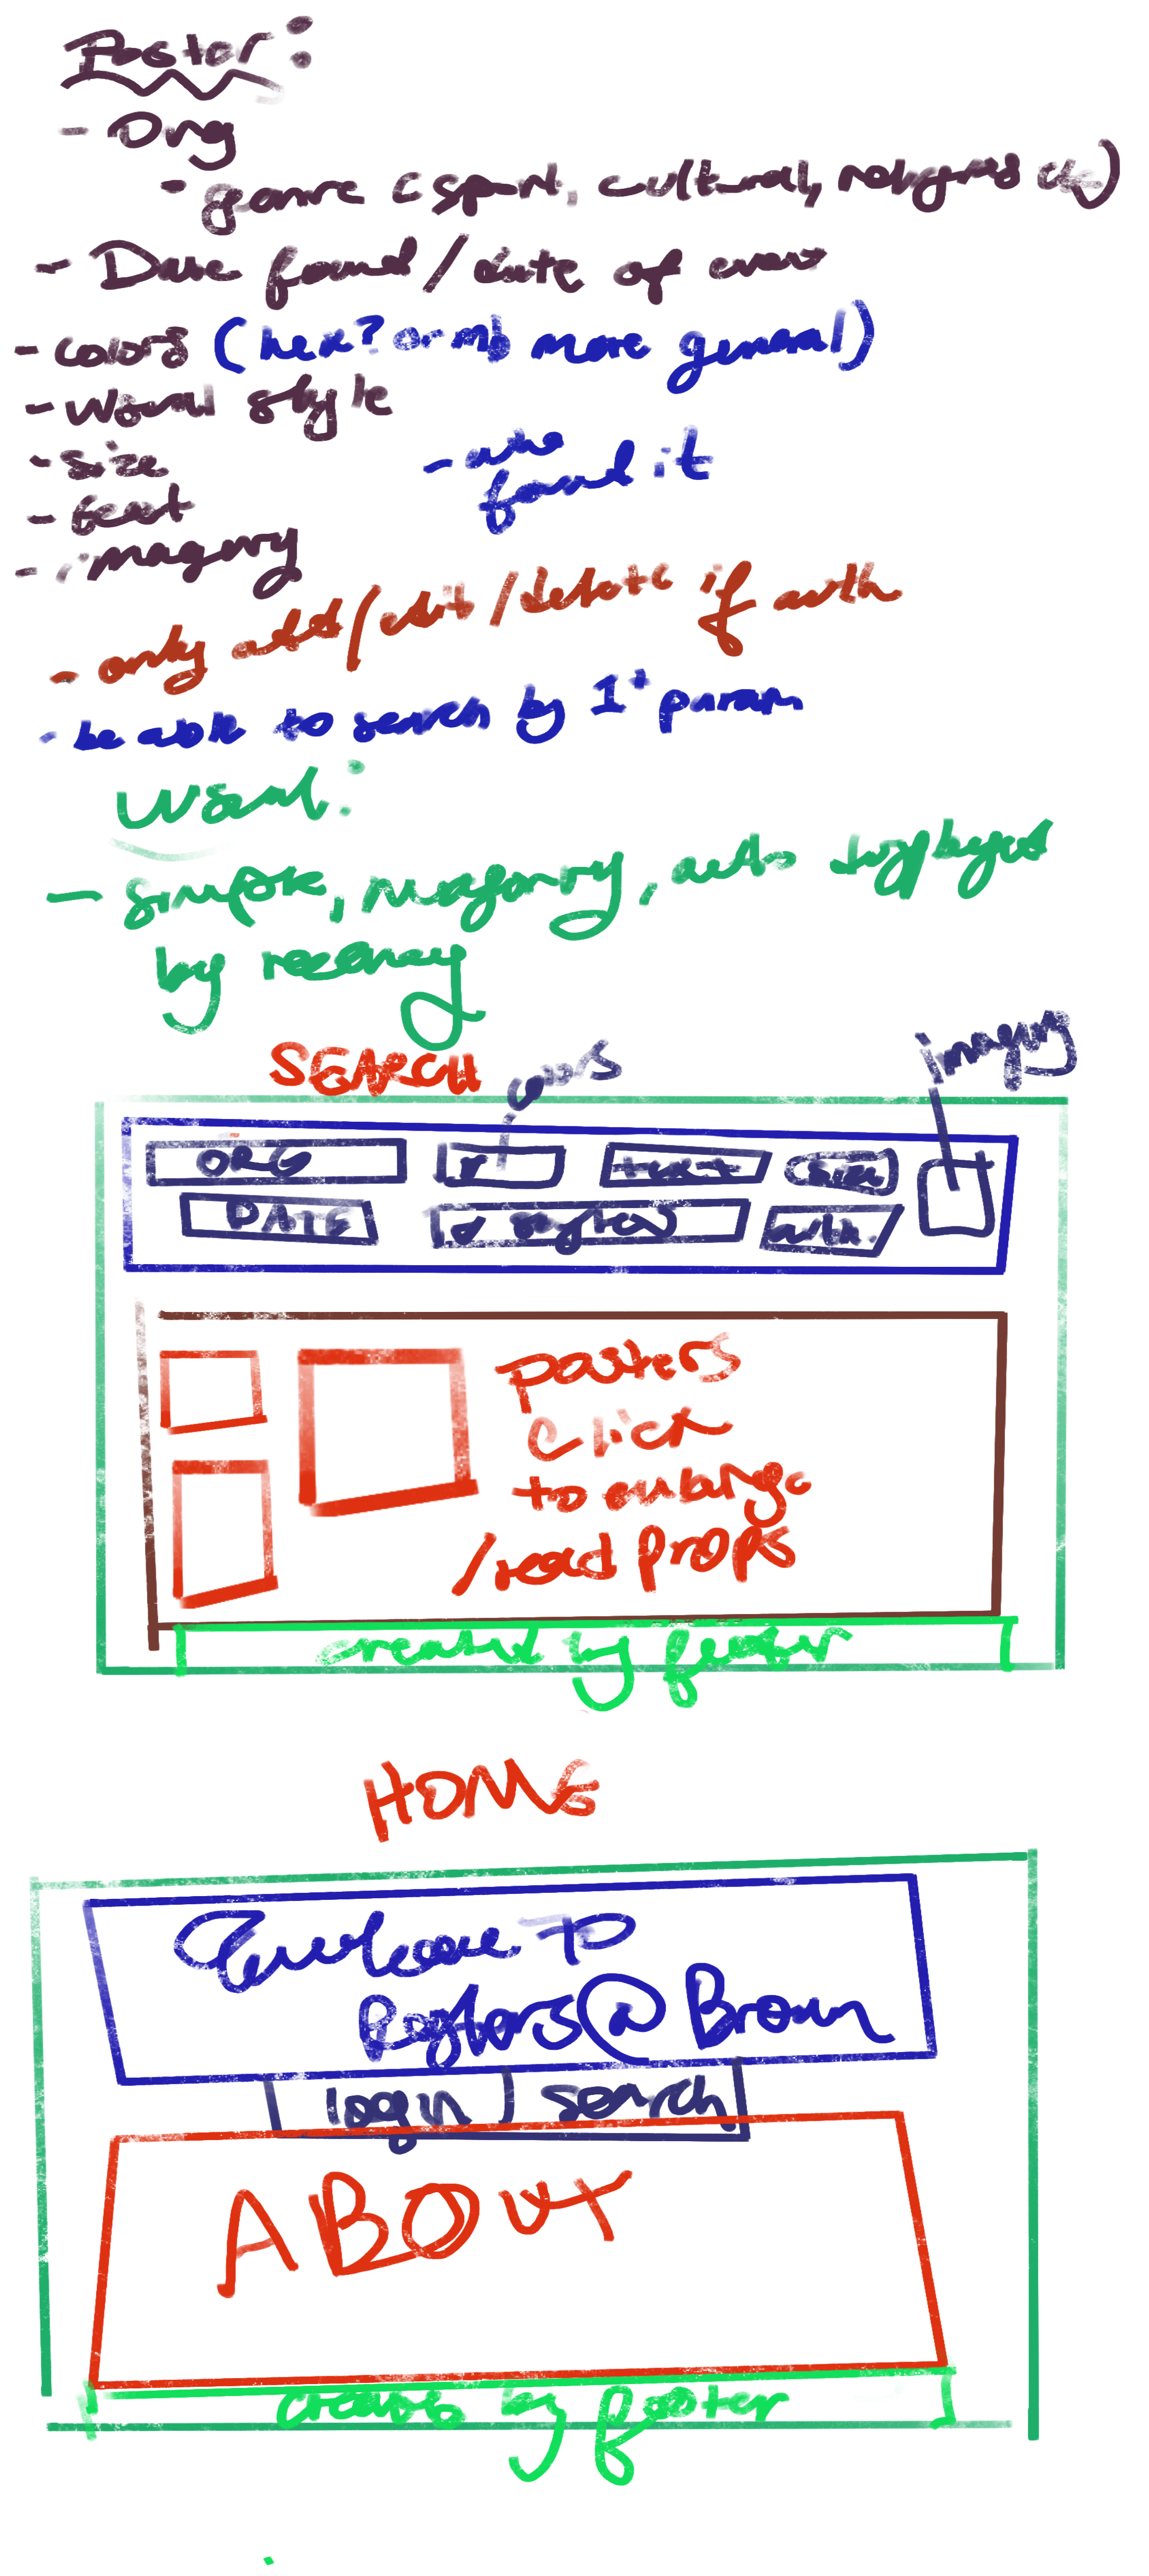 Poster:
- Org
- genre (sport, cultural, religious etc)
- Date found / date of event
- colors (hex? or mb more general)
- visual style
- size
- who found it
- text
- imagery
- only add/edit/delete if auth
- be able to search by 1+ param
visual:
- simple, masonry, auto
by recency
SEARCH
colors
imagery
ORG
text
size
DATE
styles
auth.
posters
click
to enlarge
/read props
created by footer
HOME
welcome to
Posters@Brown
login | search
ABOUT
created by footer